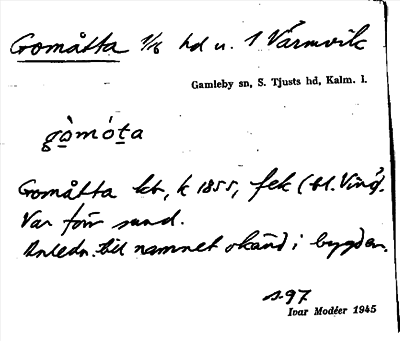 Gomåtta 1/8 hd u. 1 Värmvik
Gamleby sn, S. Tjusts hd, Kalm. l.
gòmóta
Gomåtta kb, k 1855, fek (bl. Vinö).
Var förr sund.
Anledn. till namnet okänd i bygden.
s. 97
Ivar Modéer 1945